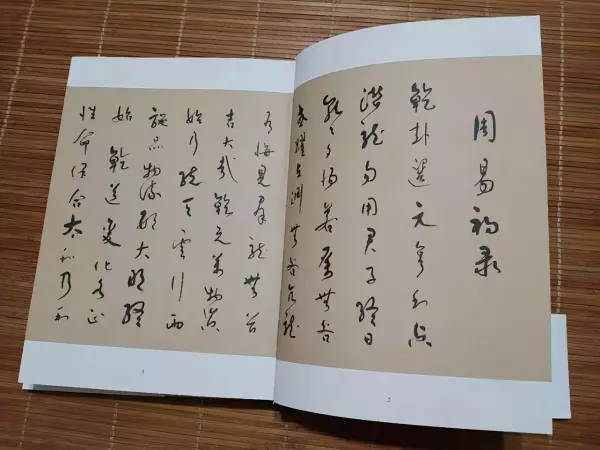 周易录
乾卦選元亨利貞
潜龍勿用君子終日
乾乾夕惕若厲無咎
或躍在淵無咎飛龍
2
有悔見群龍無首
吉大哉乾元萬物資
始乃統天雲行雨
施品物流形大明終
始乾道變化各正
性命保合太和乃利
3